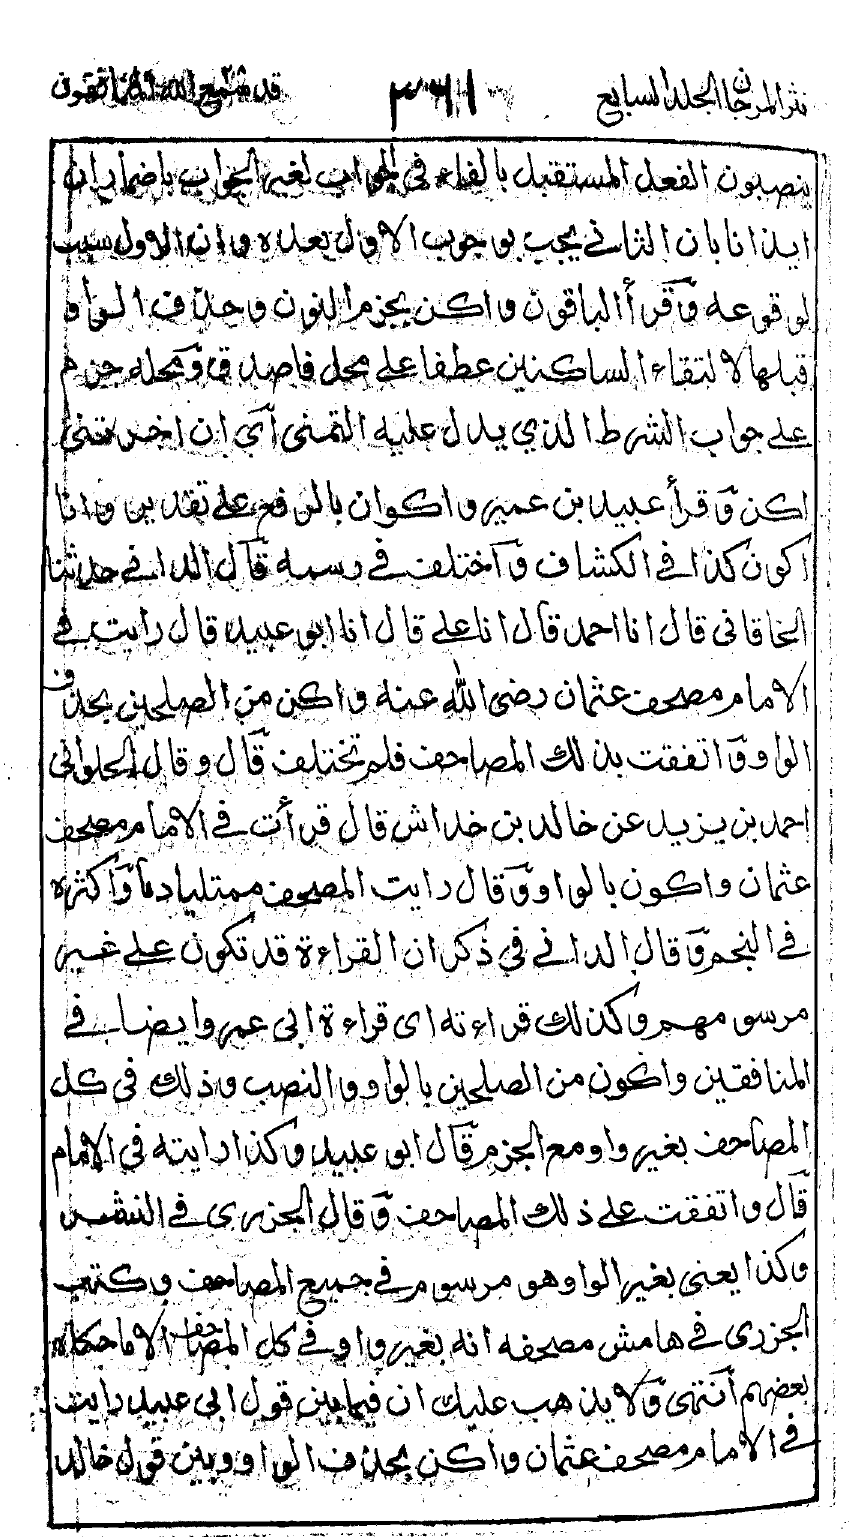 نثر المرجان المجلد السابع
٣٦١
قد سمع الله ٢٨ المنافقون
ينصبون الفعل المستقبل بالفاء في الجواب لغير الجواب باضمار ان
ايذانا بان الثاني يجب بوجوب الاول بعده وان الاول سبب
لوقوعه وقرأ الباقون واكن بجزم النون وحذف الواو
قبلها لالتقاء الساكنين عطفا على محل فاصدق ومحله جزم
على جواب الشرط الذي يدل عليه التمنى أي ان اخرتنى
اكن وقرأ عبيد بن عمير واكوان بالرفع على تقدير وانا
اكون كذا في الكشاف واختلف في رسمه قال الداني حدثنا
الخاقانى قال انا احمد قال انا على قال انا ابو عبيد قال رايت في
الامام مصحف عثمان رضى الله عنه واكن من الصلحين بحذف
الواو واتفقت بذلك المصاحف فلم تختلف قال وقال الحلوانى
احمد بن يزيد عن خالد بن خداش قال قرأت في الامام مصحف
عثمان واكون بالواو وقال رايت المصحف ممتليا دما واكثره
في النجم وقال الداني في ذكر ان القراءة قد تكون على غير
مرسومهم وكذلك قراءته اى قراءة ابى عمرو ايضا في
المنافقين واكون من الصلحين بالواو والنصب وذلك في كل
المصاحف بغير واو مع الجزم قال ابو عبيد وكذا رايته في الامام
قال واتفقت على ذلك المصاحف وقال الجزرى في النشر
وكذا يعنى بغير الواو هو مرسوم في جميع المصاحف وكتب
الجزرى في هامش مصحفه انه بغير واو في كل المصاحف الا ما حكاه
بعضهم انتهى ولا يذهب عليك ان فيما بين قول ابى عبيد رايت
في الامام مصحف عثمان واكن بحذف الواو وبين قول خالد